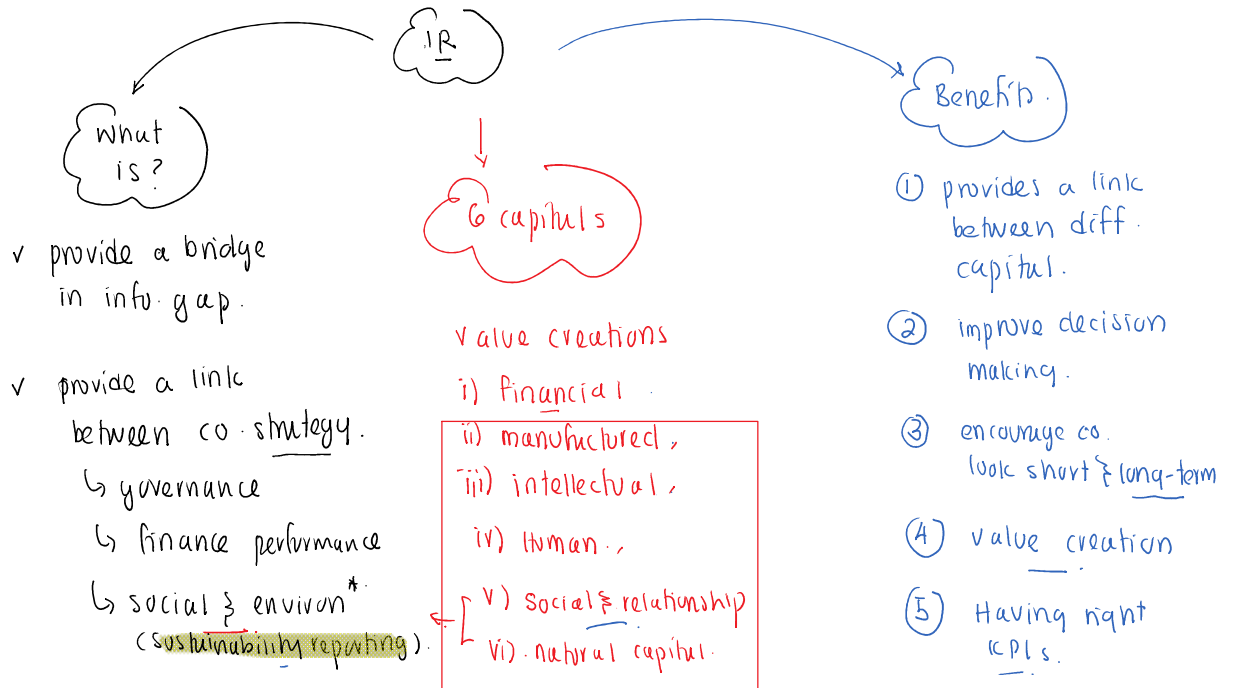 IR
What
is?
✓ provide a bridge
in info. gap.
✓ provide a link
between co. strategy.
↳ governance
↳ finance performance
↳ social & environ*.
(sustainability reporting).
6 capitals
value creations
i) financial.
ii) manufactured,
iii) intellectual,
iv) Human.,
v) social & relationship
vi). natural capital.
Benefits.
① provides a link
between diff.
capital.
② improve decision
making.
③ encourage co.
look short & long-term
④ value creation
⑤ Having right
KPIs.